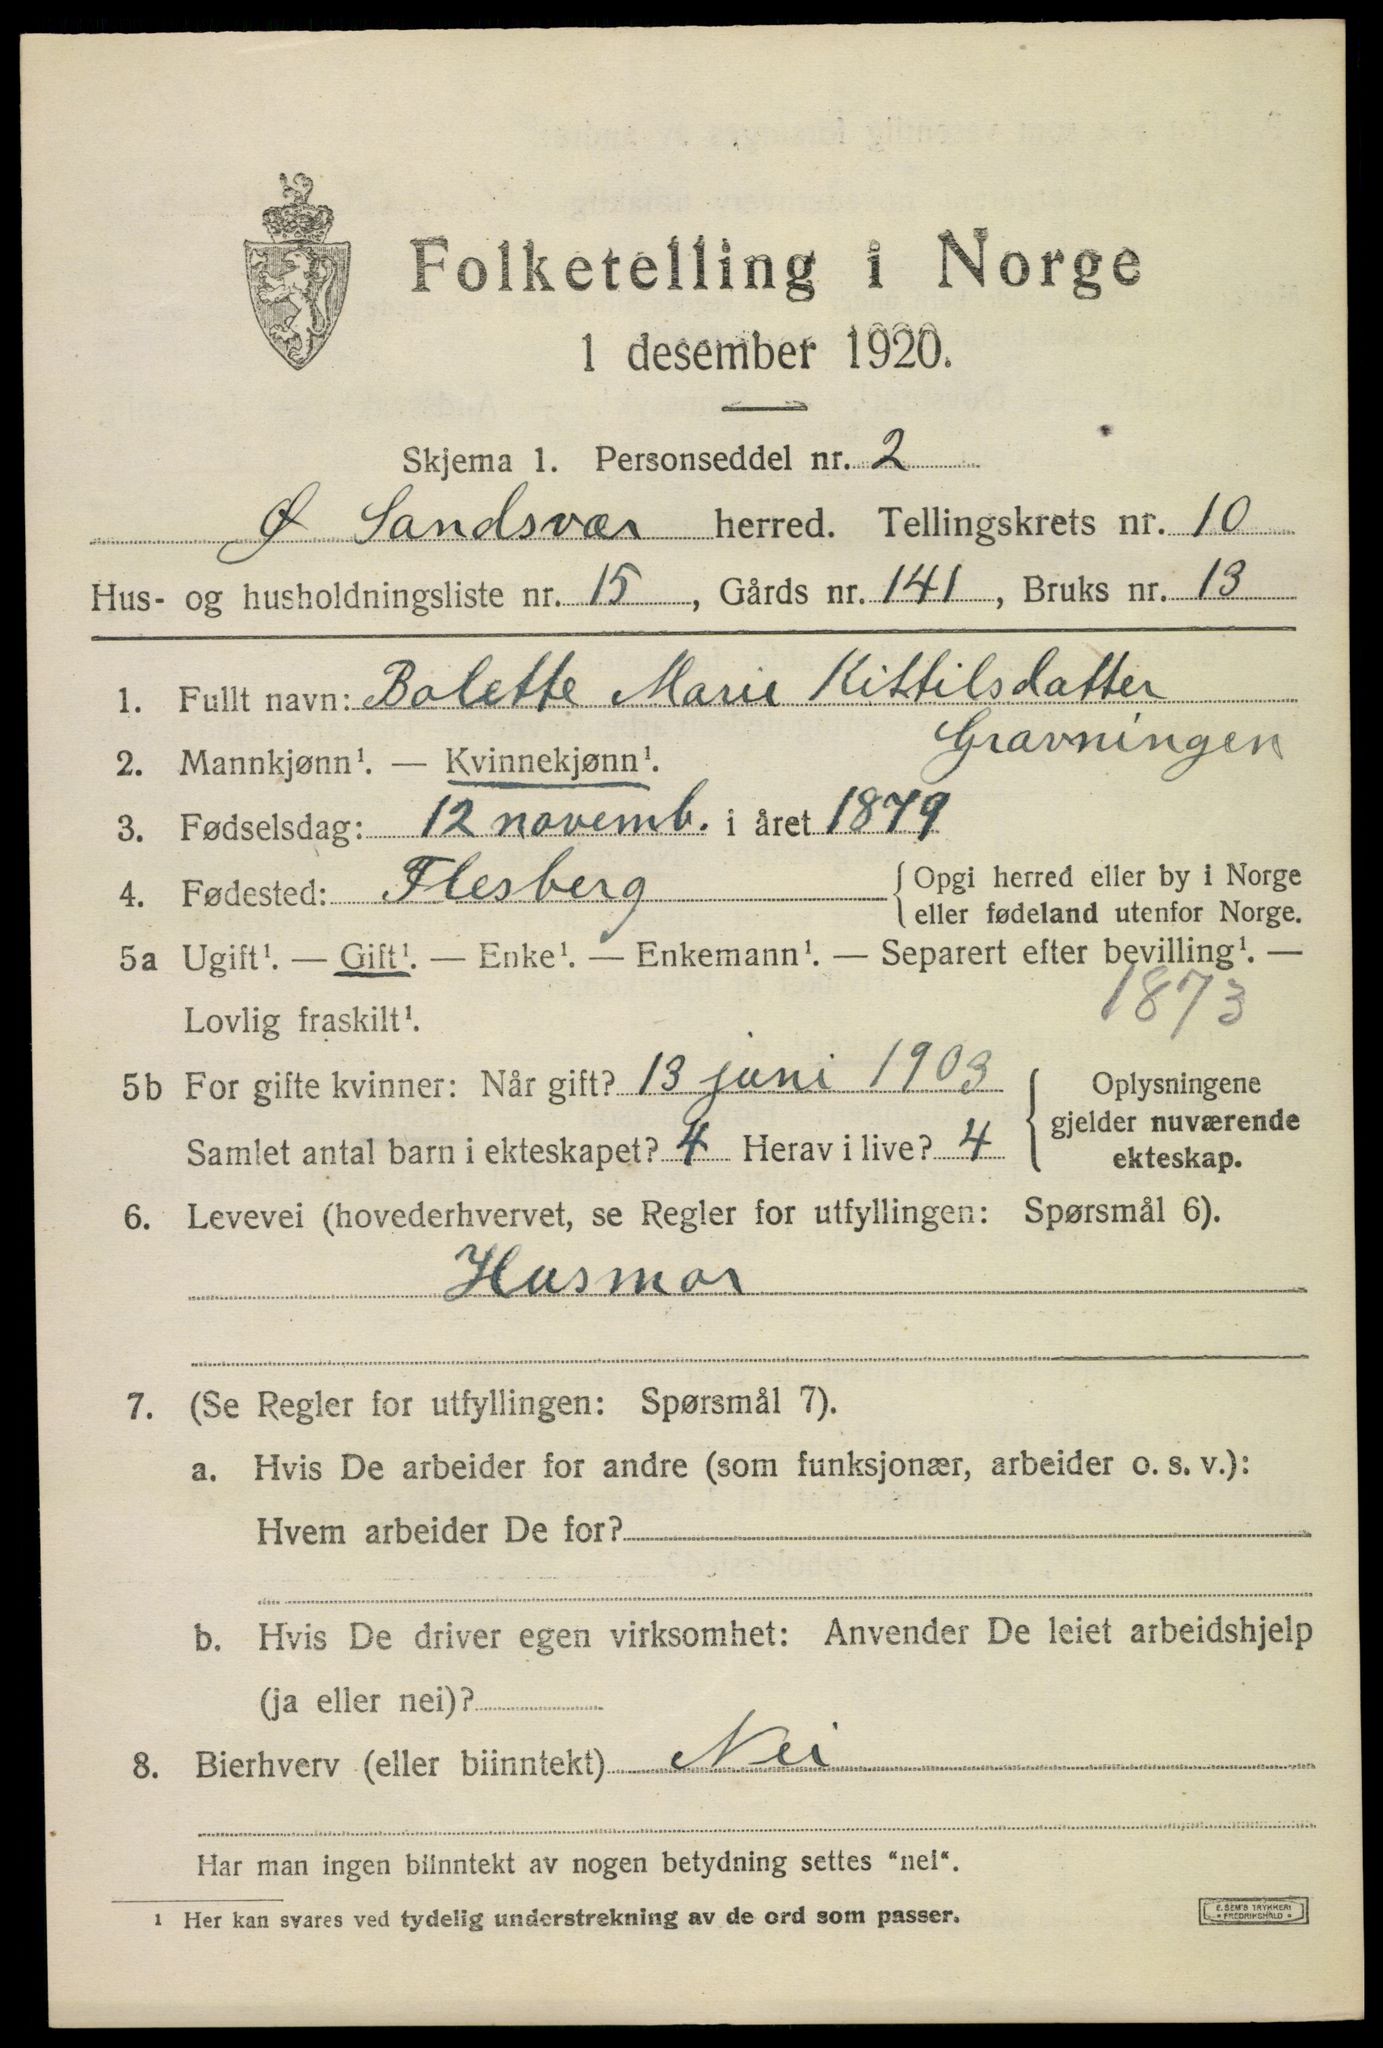 Folketelling i Norge
1 desember 1920.
Skjema 1. Personseddel nr. 2
Ø Sandsvær herred. Tellingskrets nr. 10
Hus- og husholdningsliste nr. 15, Gårds nr. 141, Bruks nr. 13
1. Fullt navn: Bolette Marie Kittilsdatter
Gravningen
2. Mannkjønn¹. — Kvinnekjønn¹.
3. Fødselsdag: 12 novemb. i året 1879
4. Fødested: Flesberg { Opgi herred eller by i Norge
eller fødeland utenfor Norge.
5a Ugift¹. — Gift¹. — Enke¹. — Enkemann¹. — Separert efter bevilling¹. —
Lovlig fraskilt¹. 1873
5b For gifte kvinner: Når gift? 13 juni 1903
Samlet antal barn i ekteskapet? 4 Herav i live? 4
{ Oplysningene
gjelder nuværende
ekteskap.
6. Levevei (hovederhvervet, se Regler for utfyllingen: Spørsmål 6).
Husmor
7. (Se Regler for utfyllingen: Spørsmål 7).
a. Hvis De arbeider for andre (som funksjonær, arbeider o. s. v.):
Hvem arbeider De for?
b. Hvis De driver egen virksomhet: Anvender De leiet arbeidshjelp
(ja eller nei)?
8. Bierhverv (eller biinntekt) Nei
Har man ingen biinntekt av nogen betydning settes "nei".
¹ Her kan svares ved tydelig understrekning av de ord som passer.
E. SEM'S TRYKKERI
• FREDRIKSHALD •